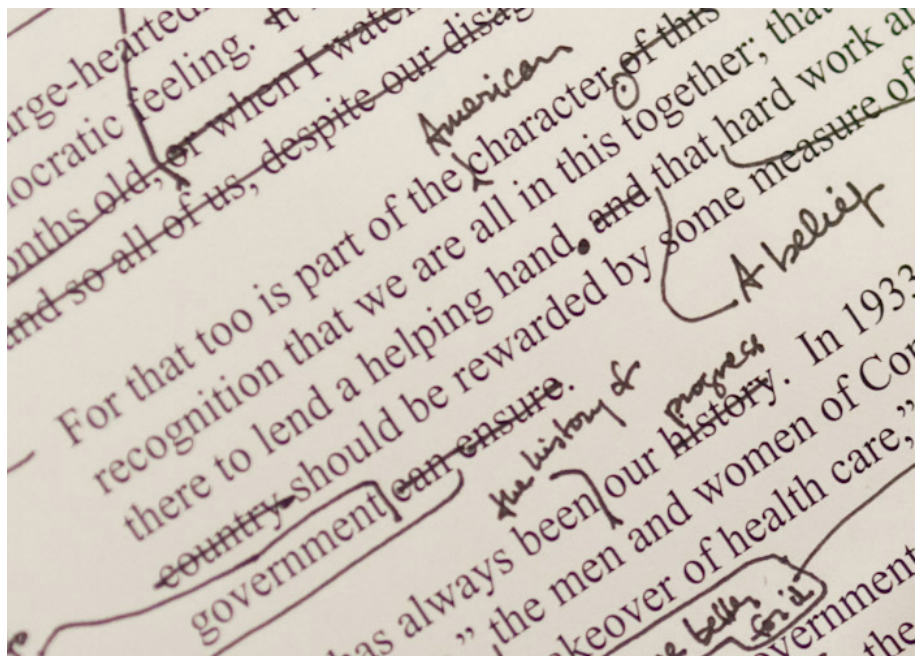 large-hearted
ocratic feeling. It
onths old, or when I watch
and so all of us, despite our disag
American
For that too is part of the character of this
recognition that we are all in this together; that
there to lend a helping hand. and that hard work a
country should be rewarded by some measure of
A belief
government can ensure.
the history of
progress
has always been our history. In 1933
," the men and women of Con
keover of health care,"
better
for it
overnment
the